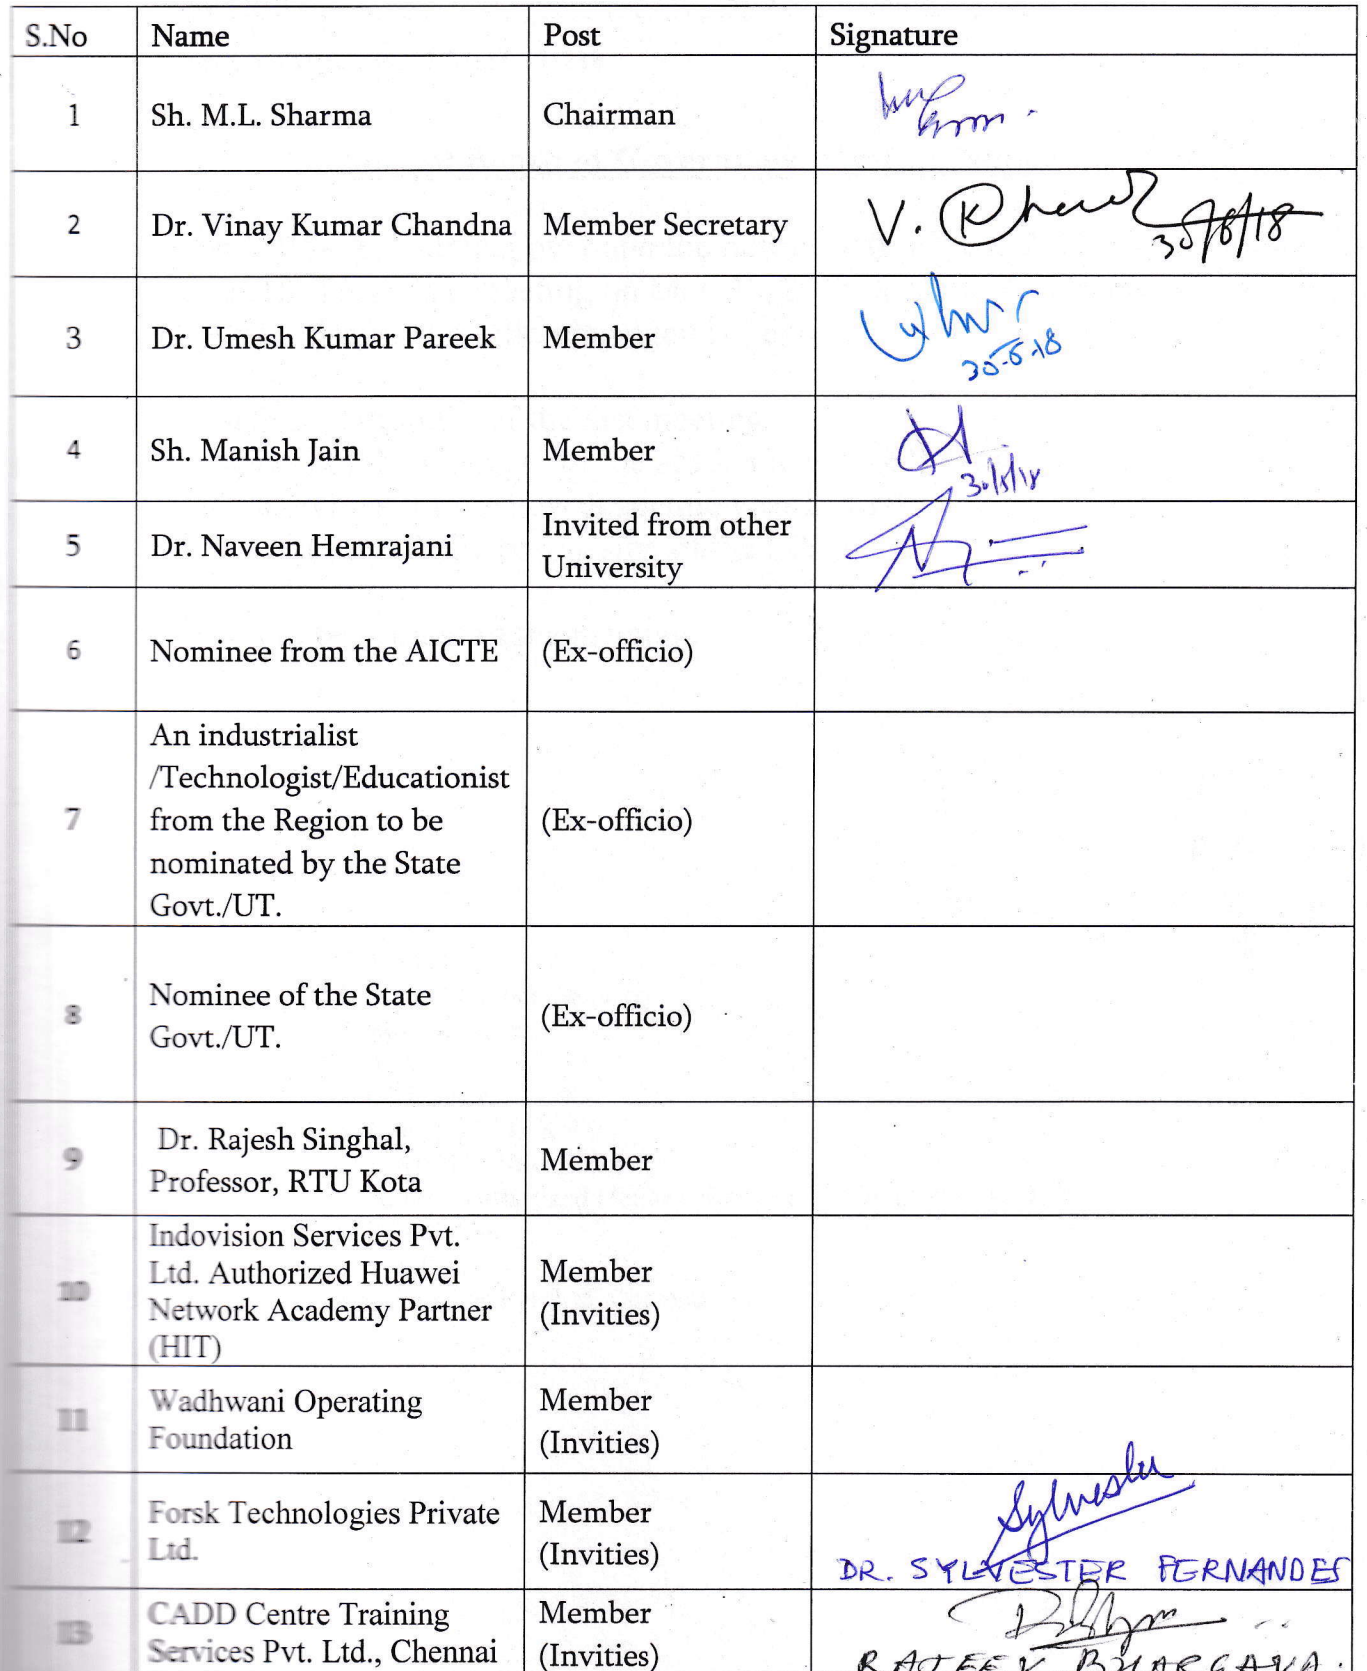 S.No Name Post Signature
1 Sh. M.L. Sharma Chairman
2 Dr. Vinay Kumar Chandna Member Secretary V.
30/6/18
3 Dr. Umesh Kumar Pareek Member
30-6-18
4 Sh. Manish Jain Member
5 Dr. Naveen Hemrajani Invited from other
University
6 Nominee from the AICTE (Ex-officio)
An industrialist
/Technologist/Educationist
7 from the Region to be (Ex-officio)
nominated by the State
Govt./UT.
8 Nominee of the State (Ex-officio)
Govt./UT.
9 Dr. Rajesh Singhal, Member
Professor, RTU Kota
Indovision Services Pvt.
10 Ltd. Authorized Huawei Member
Network Academy Partner (Invities)
(HIT)
11 Wadhwani Operating Member
Foundation (Invities)
12 Forsk Technologies Private Member Sylvester
Ltd. (Invities) DR. SYLVESTER FERNANDES
13 CADD Centre Training Member
Services Pvt. Ltd., Chennai (Invities) RAJEEV BHARGAVA.